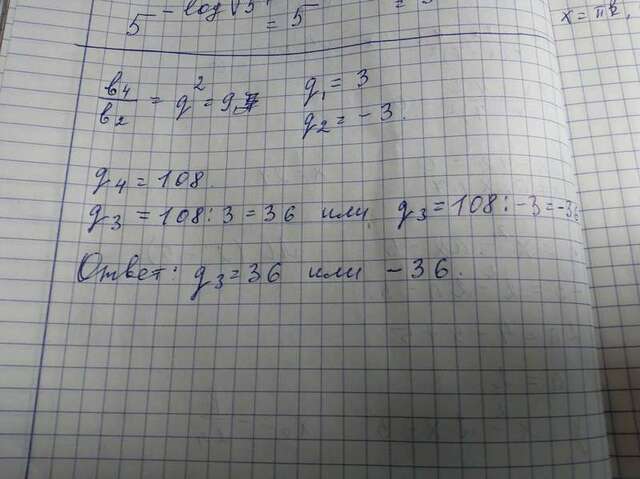 = 5
x = πk,
b₄/b₂ = q² = 9, q₁ = 3
q₂ = -3.
q₄ = 108.
q₃ = 108 : 3 = 36 или q₃ = 108 : -3 = -36
Ответ: q₃ = 36 или - 36.